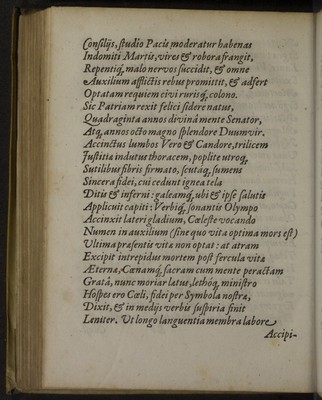 Consilijs, studio Pacis moderatur habenas
Indomiti Martis, vires & robora frangit,
Repentiq́, malo nervos succidit, & omne
Auxilium afflictis rebus promittit, & adfert
Optatam requiem civi rurisq́, colono.
Sic Patriam rexit felici sidere natus,
Quadraginta annos divinâ mente Senator,
Atq́, annos octo magno splendore Duumvir.
Accinctus lumbos Vero & Candore, trilicem
Justitia indutus thoracem, poplite utroq́,
Sutilibus fibris firmato, scutaq́, sumens
Sincera fidei, cui cedunt ignea tela
Ditis & inferni: galeamq́, ubi & ipse salutis
Applicuit capiti: Verbiq́, sonantis Olympo
Accinxit lateri gladium, Cœleste vocando
Numen in auxilium (sine quo vita optima mors est)
Ultima præsentis vitæ non optat: at atram
Excipit intrepidus mortem post fercula vitæ
Æternæ, Cœnamq́, sacram cum mente peractam
Gratâ, nunc moriar lætus, lethóq́, ministro
Hospes ero Cœli, fidei per Symbola nostræ,
Dixit, & in medijs verbis suspiria finit
Leniter. Ut longo languentia membra labore
Accipi-